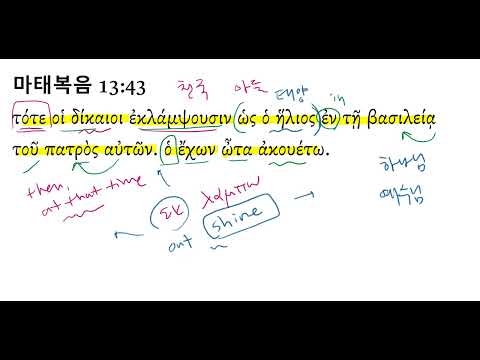 마태복음 13:43
천국 아들 태양 in
τότε οἱ δίκαιοι ἐκλάμψουσιν ὡς ὁ ἥλιος ἐν τῇ βασιλείᾳ
τοῦ πατρὸς αὐτῶν. ὁ ἔχων ὦτα ἀκουέτω.
하나님
then,
at that time
εκ λαμπω
예수님
out shine